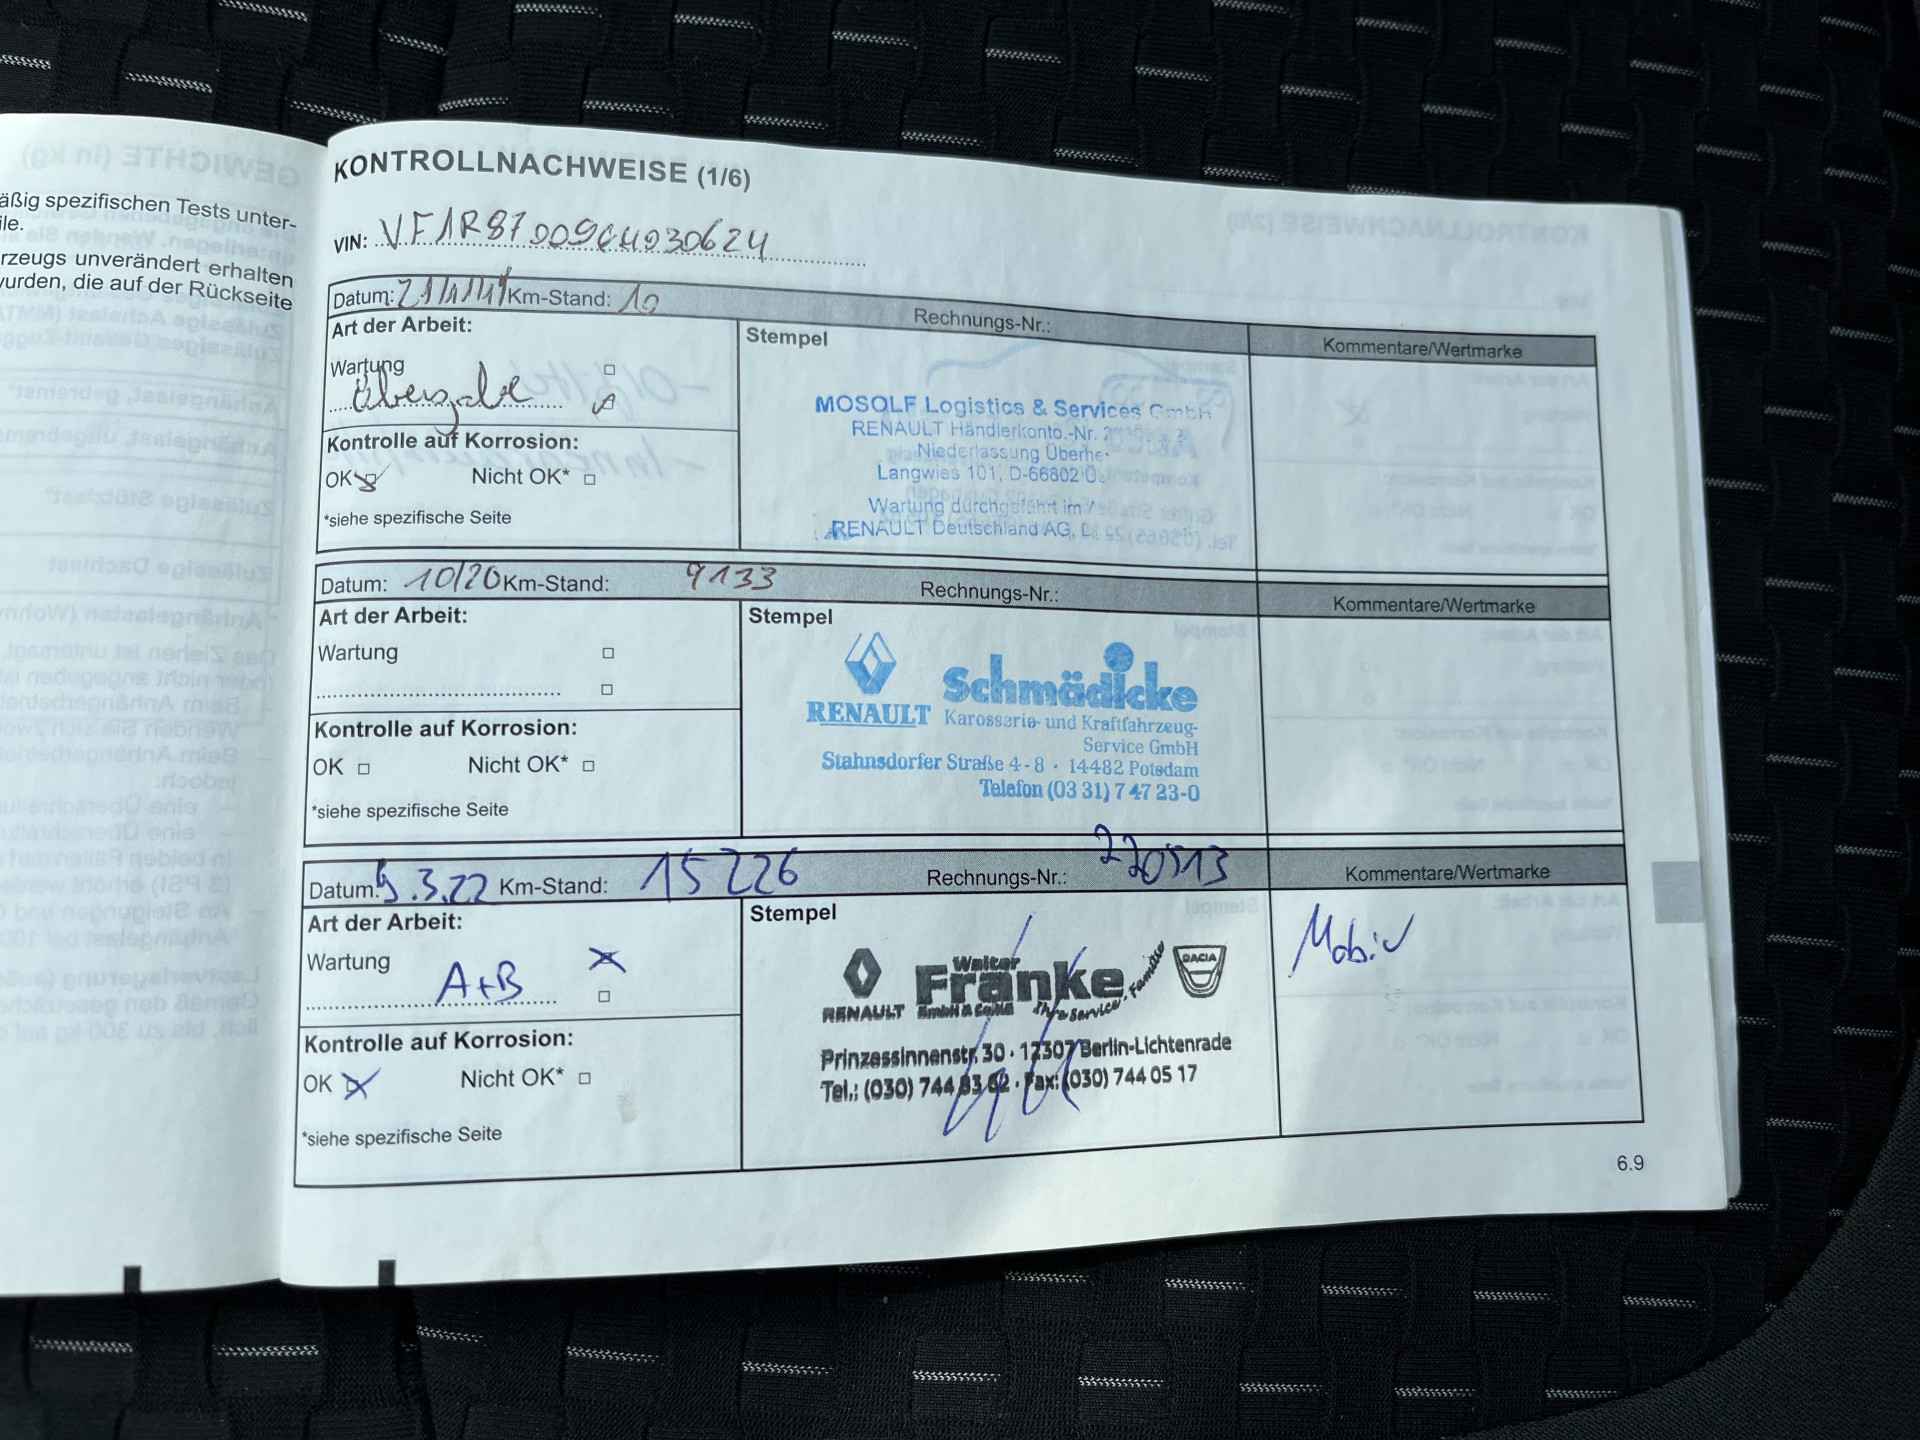 äßig spezifischen Tests unter-
ile.
rzeugs unverändert erhalten
wurden, die auf der Rückseite
KONTROLLNACHWEISE (1/6)
VIN:
Datum: Km-Stand: 10 Rechnungs-Nr.:
Kommentare/Wertmarke
Art der Arbeit:
Wartung
Übergabe
Kontrolle auf Korrosion:
OK Nicht OK*
*siehe spezifische Seite
Stempel
MOSOLF Logistics & Services GmbH
RENAULT Händlerkonto.-Nr.
Niederlassung
Langwies 101, D-66802
Wartung durchgeführt im
RENAULT Deutschland AG,
Datum: 10/20 Km-Stand: 9133 Rechnungs-Nr.:
Kommentare/Wertmarke
Art der Arbeit:
Wartung
Kontrolle auf Korrosion:
OK Nicht OK*
*siehe spezifische Seite
Stempel
RENAULT
Schmädicke
Karosserie- und Kraftfahrzeug-
Service GmbH
Stahnsdorfer Straße 4-8 · 14482 Potsdam
Telefon (03 31) 7 47 23-0
Datum: 9.3.22 Km-Stand: 15226 Rechnungs-Nr.: 220513
Kommentare/Wertmarke
Art der Arbeit:
Wartung
A+B
Kontrolle auf Korrosion:
OK Nicht OK*
*siehe spezifische Seite
Stempel
RENAULT
Walter
Franke
GmbH & Co.KG
Ihre Service-Familie
DACIA
Prinzessinnenstr. 30 · 12307 Berlin-Lichtenrade
Tel.: (030) 744 83 62 · Fax: (030) 744 05 17
6.9